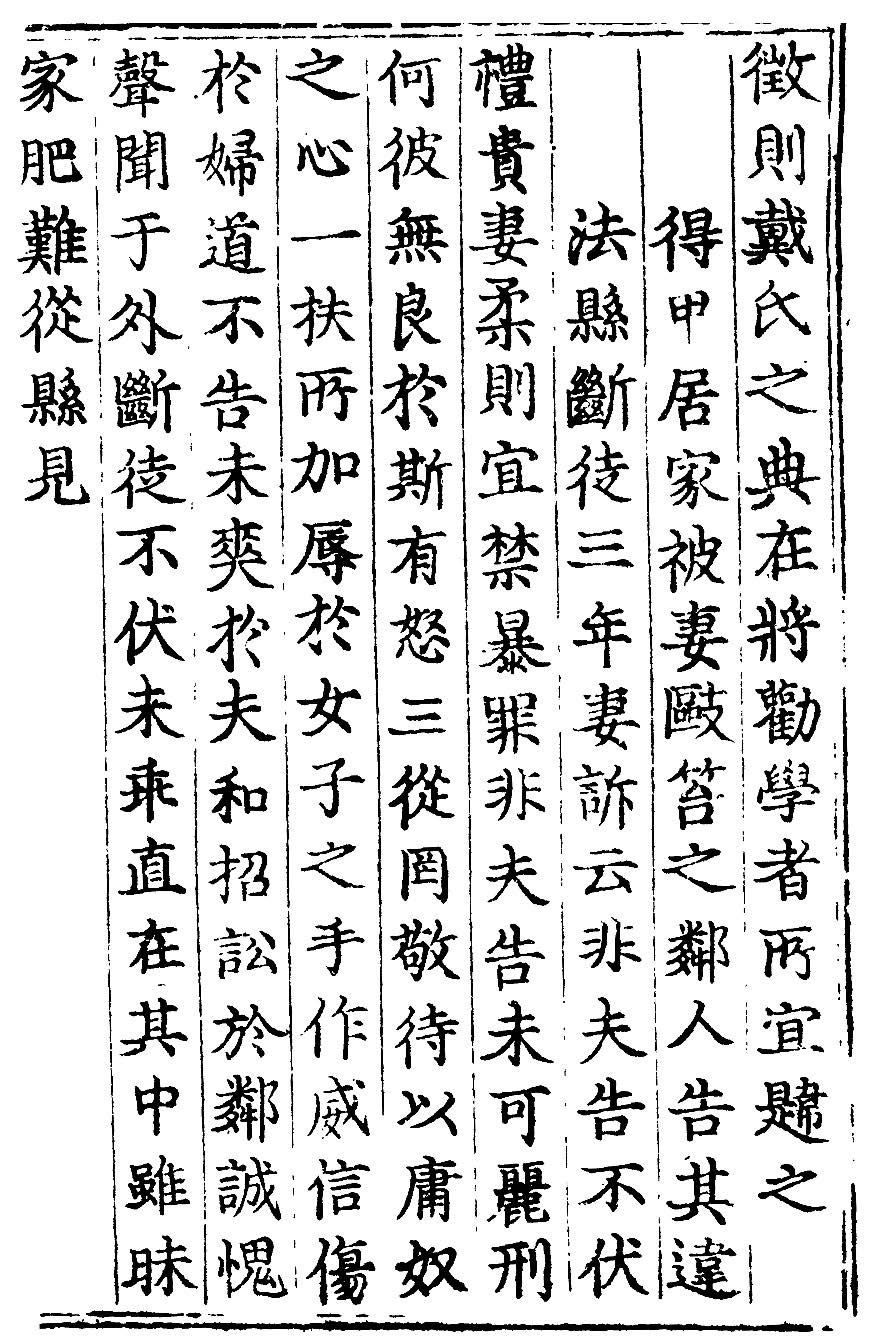 徵則戴氏之典在將勸學者所宜韙之
得甲居家被妻毆笞之鄰人告其違
法縣斷徒三年妻訴云非夫告不伏
禮貴妻柔則宜禁暴罪非夫告未可麗刑
何彼無良於斯有怒三從罔敬待以庸奴
之心一扶所加辱於女子之手作威信傷
於婦道不告未爽於夫和招訟於鄰誠愧
聲聞于外斷徒不伏未乖直在其中雖昧
家肥難從縣見